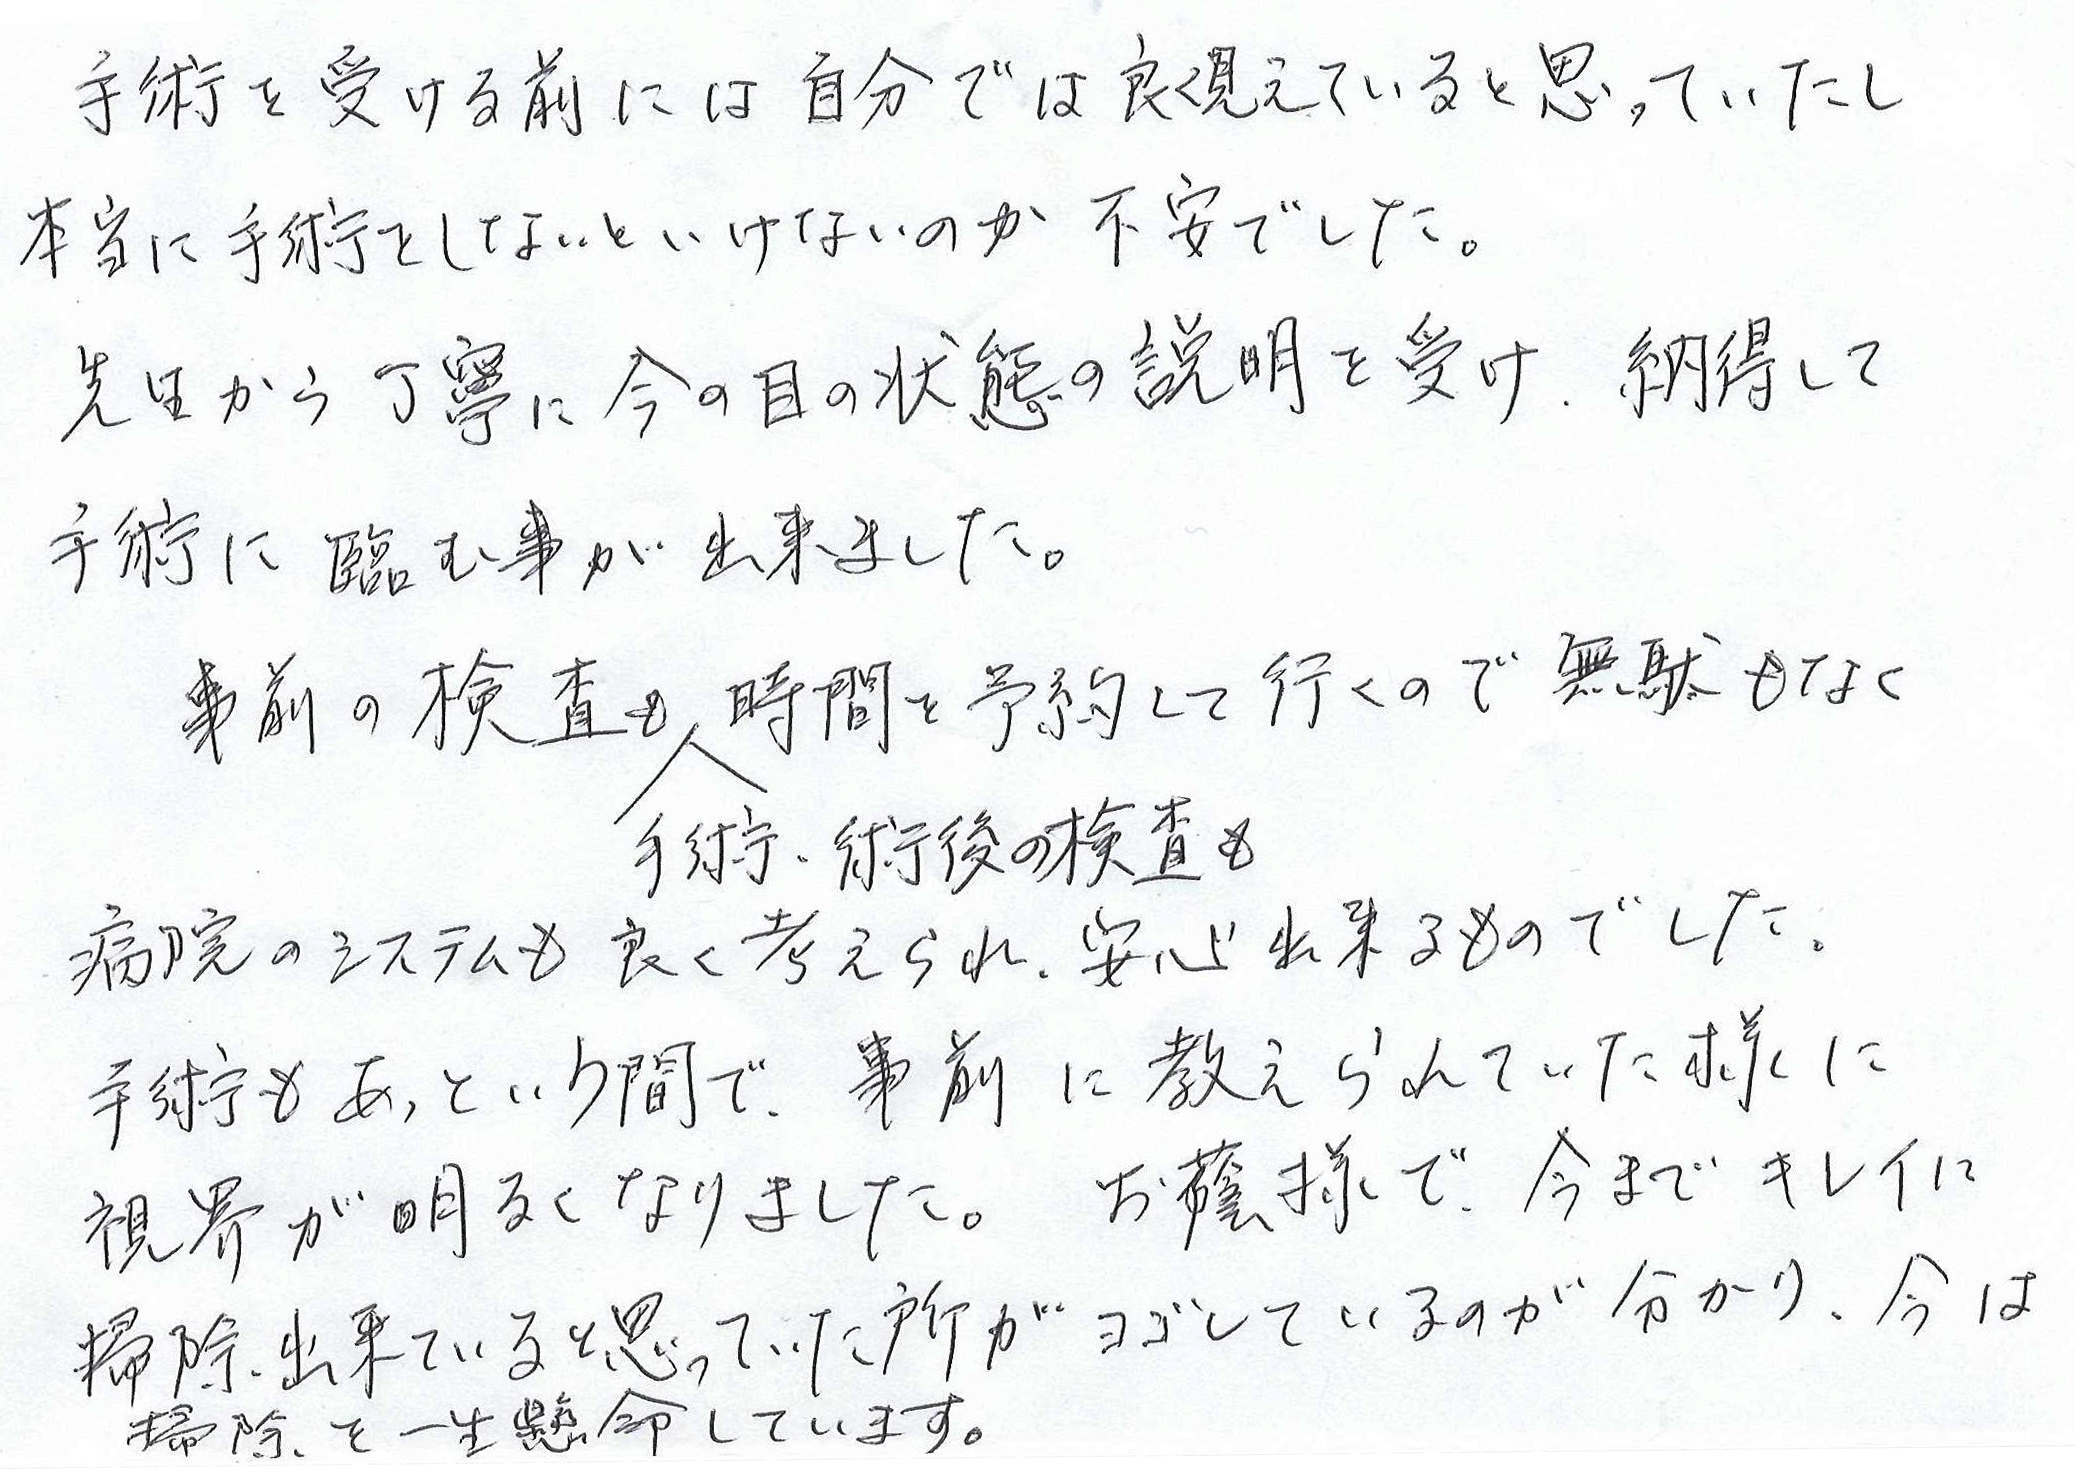 手術を受ける前には自分では良く見えていると思っていたし
本当に手術をしないといけないのか不安でした。
先生から丁寧に今の目の状態の説明を受け、納得して
手術に臨む事が出来ました。
事前の検査も時間を予約して行くので無駄もなく
手術、術後の検査も
病院のシステムも良く考えられ、安心出来るものでした。
手術もあっという間で、事前に教えられていた様に
視界が明るくなりました。 お蔭様で、今までキレイに
掃除出来ていると思っていた所がヨゴレているのが分かり、今は
掃除を一生懸命しています。